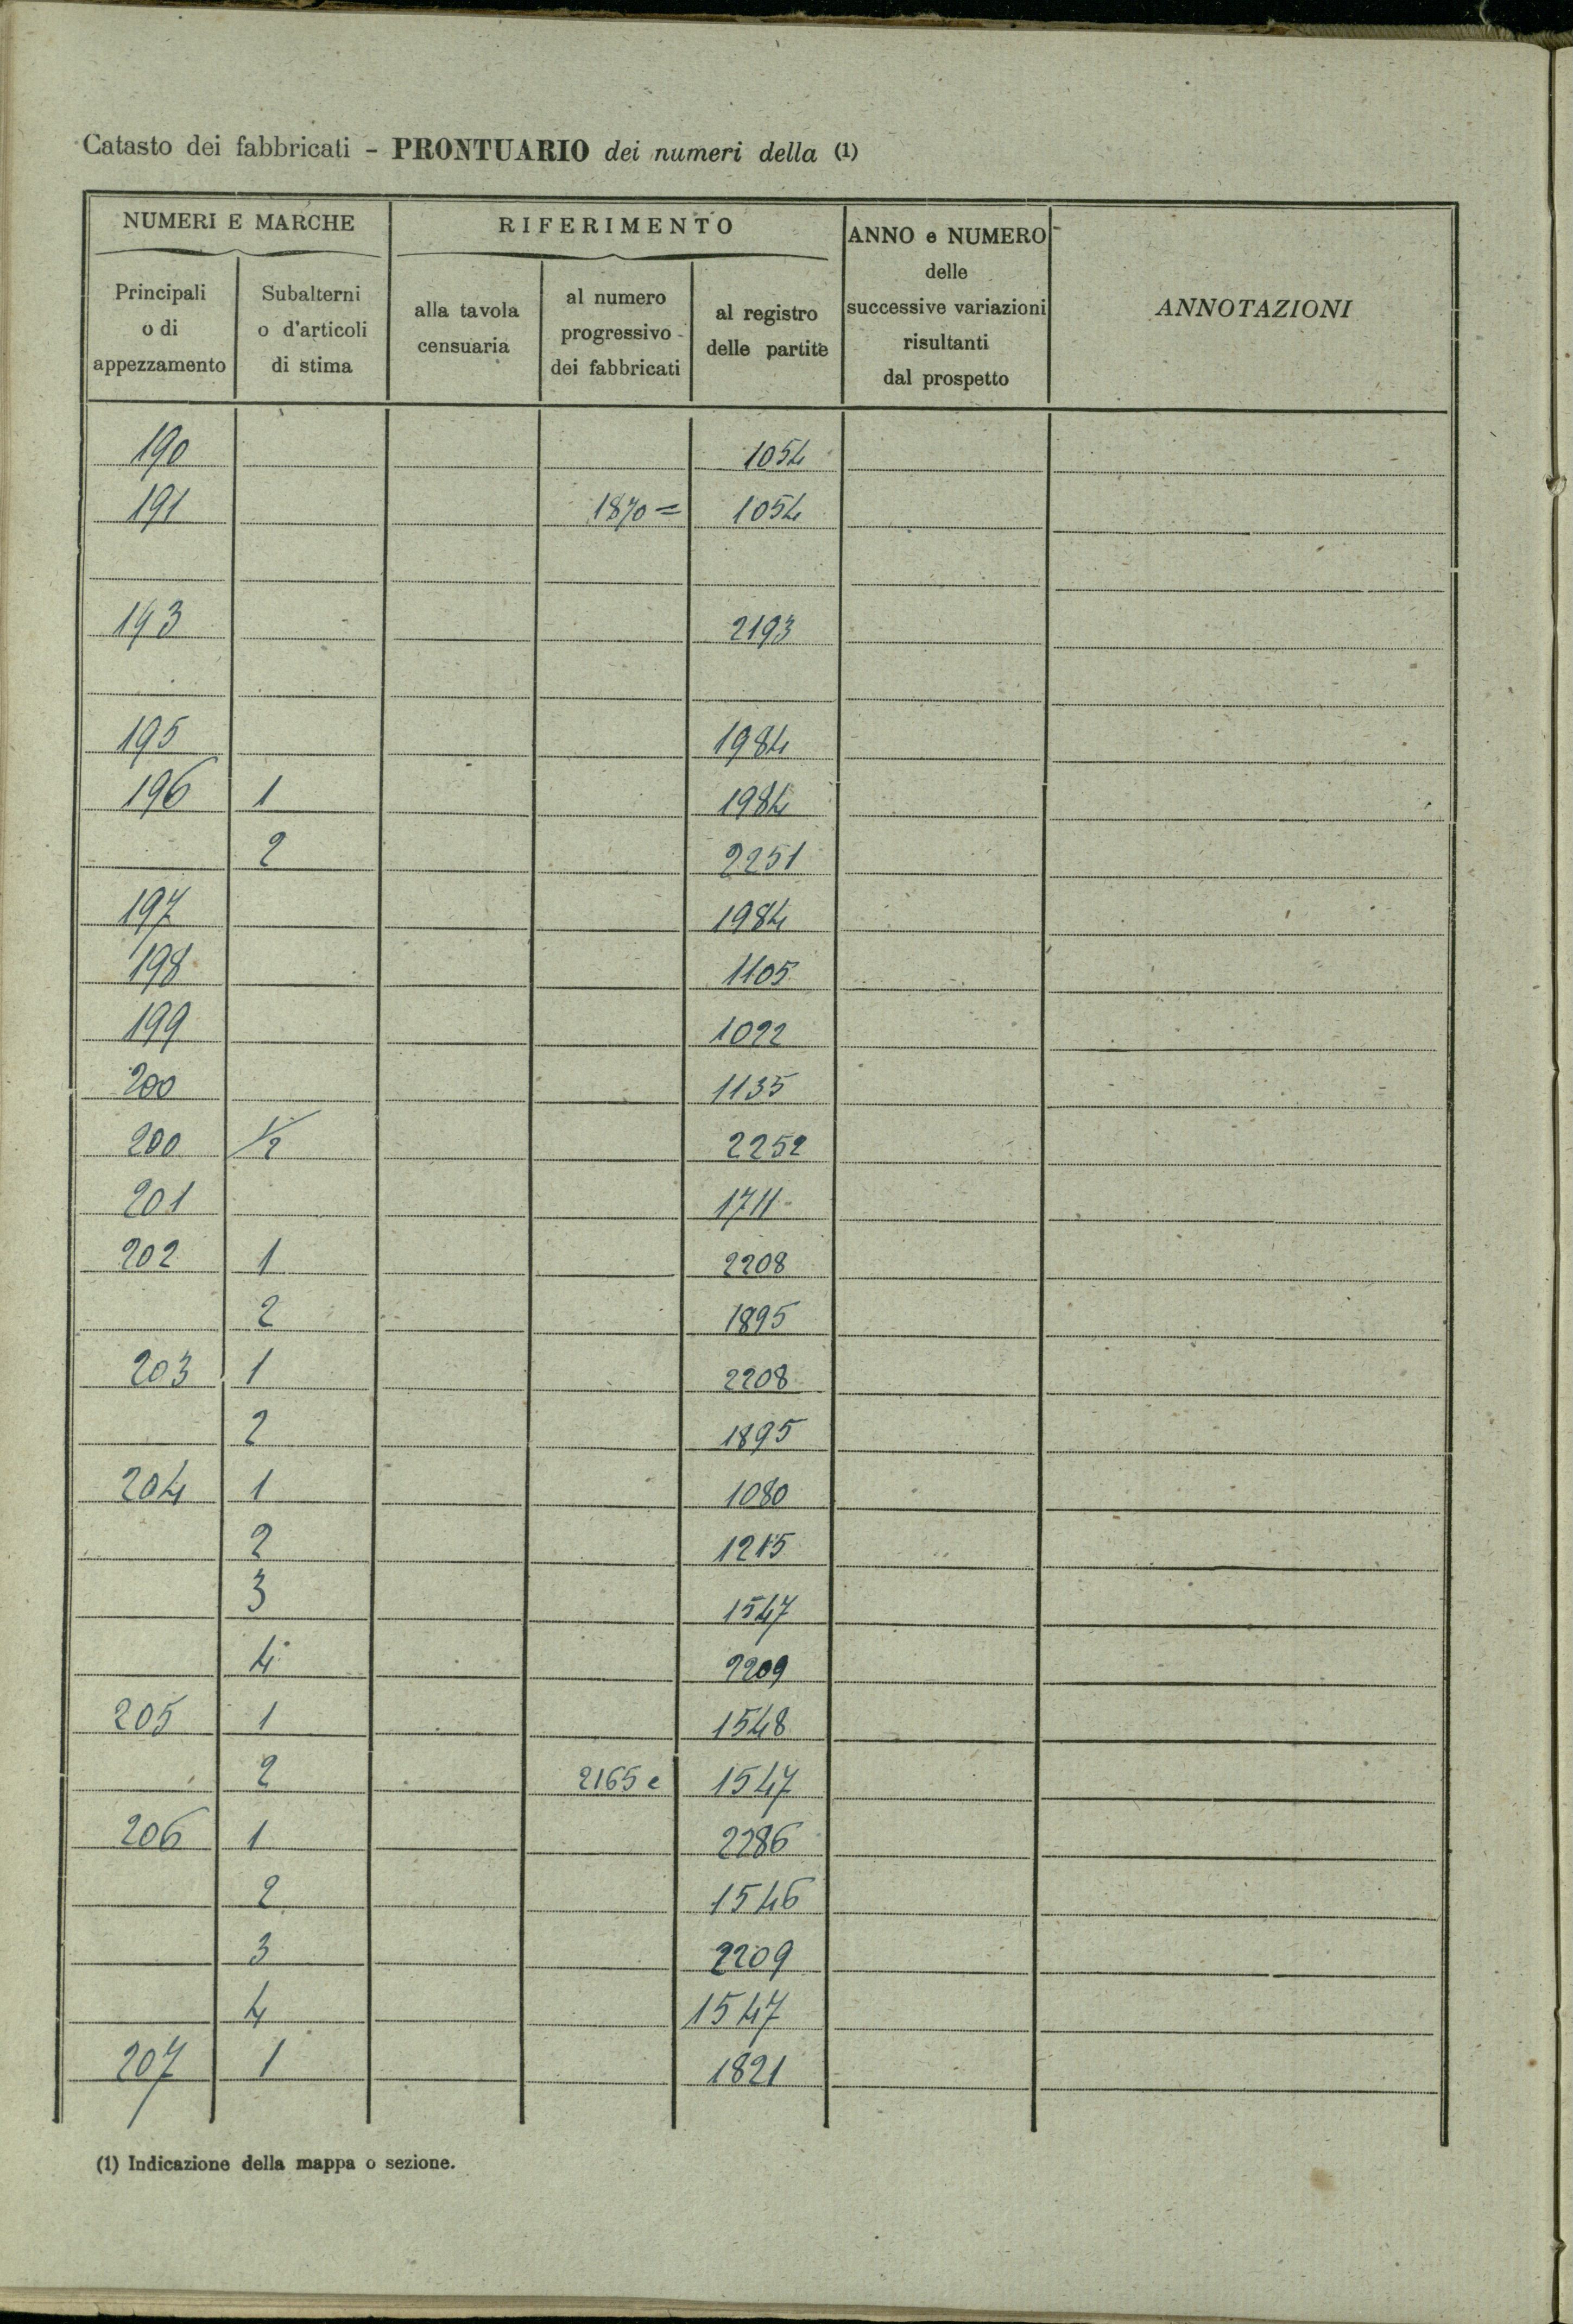 Catasto dei fabbricati - PRONTUARIO dei numeri della (1)
NUMERI E MARCHE
Principali o di appezzamento
Subalterni o d'articoli di stima
RIFERIMENTO
alla tavola censuaria
al numero progressivo dei fabbricati
al registro delle partite
ANNO e NUMERO delle successive variazioni risultanti dal prospetto
ANNOTAZIONI
190 1054
191 1870 = 1054
193 2193
195 1984
196 1 1984
2 2251
197 1984
198 1105
199 1022
200 1135
200 1/2 2252
201 1711
202 1 2208
2 1895
203 1 2208
2 1895
204 1 1080
2 1215
3 1547
4 2209
205 1 1548
2 2165 e 1547
206 1 2286
2 1546
3 2209
4 1547
207 1 1821
(1) Indicazione della mappa o sezione.